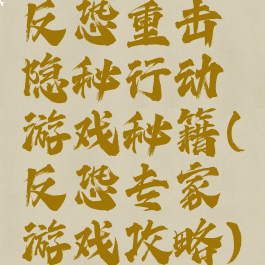 反恐重击
隐秘行动
游戏秘籍(
反恐专家
游戏攻略)